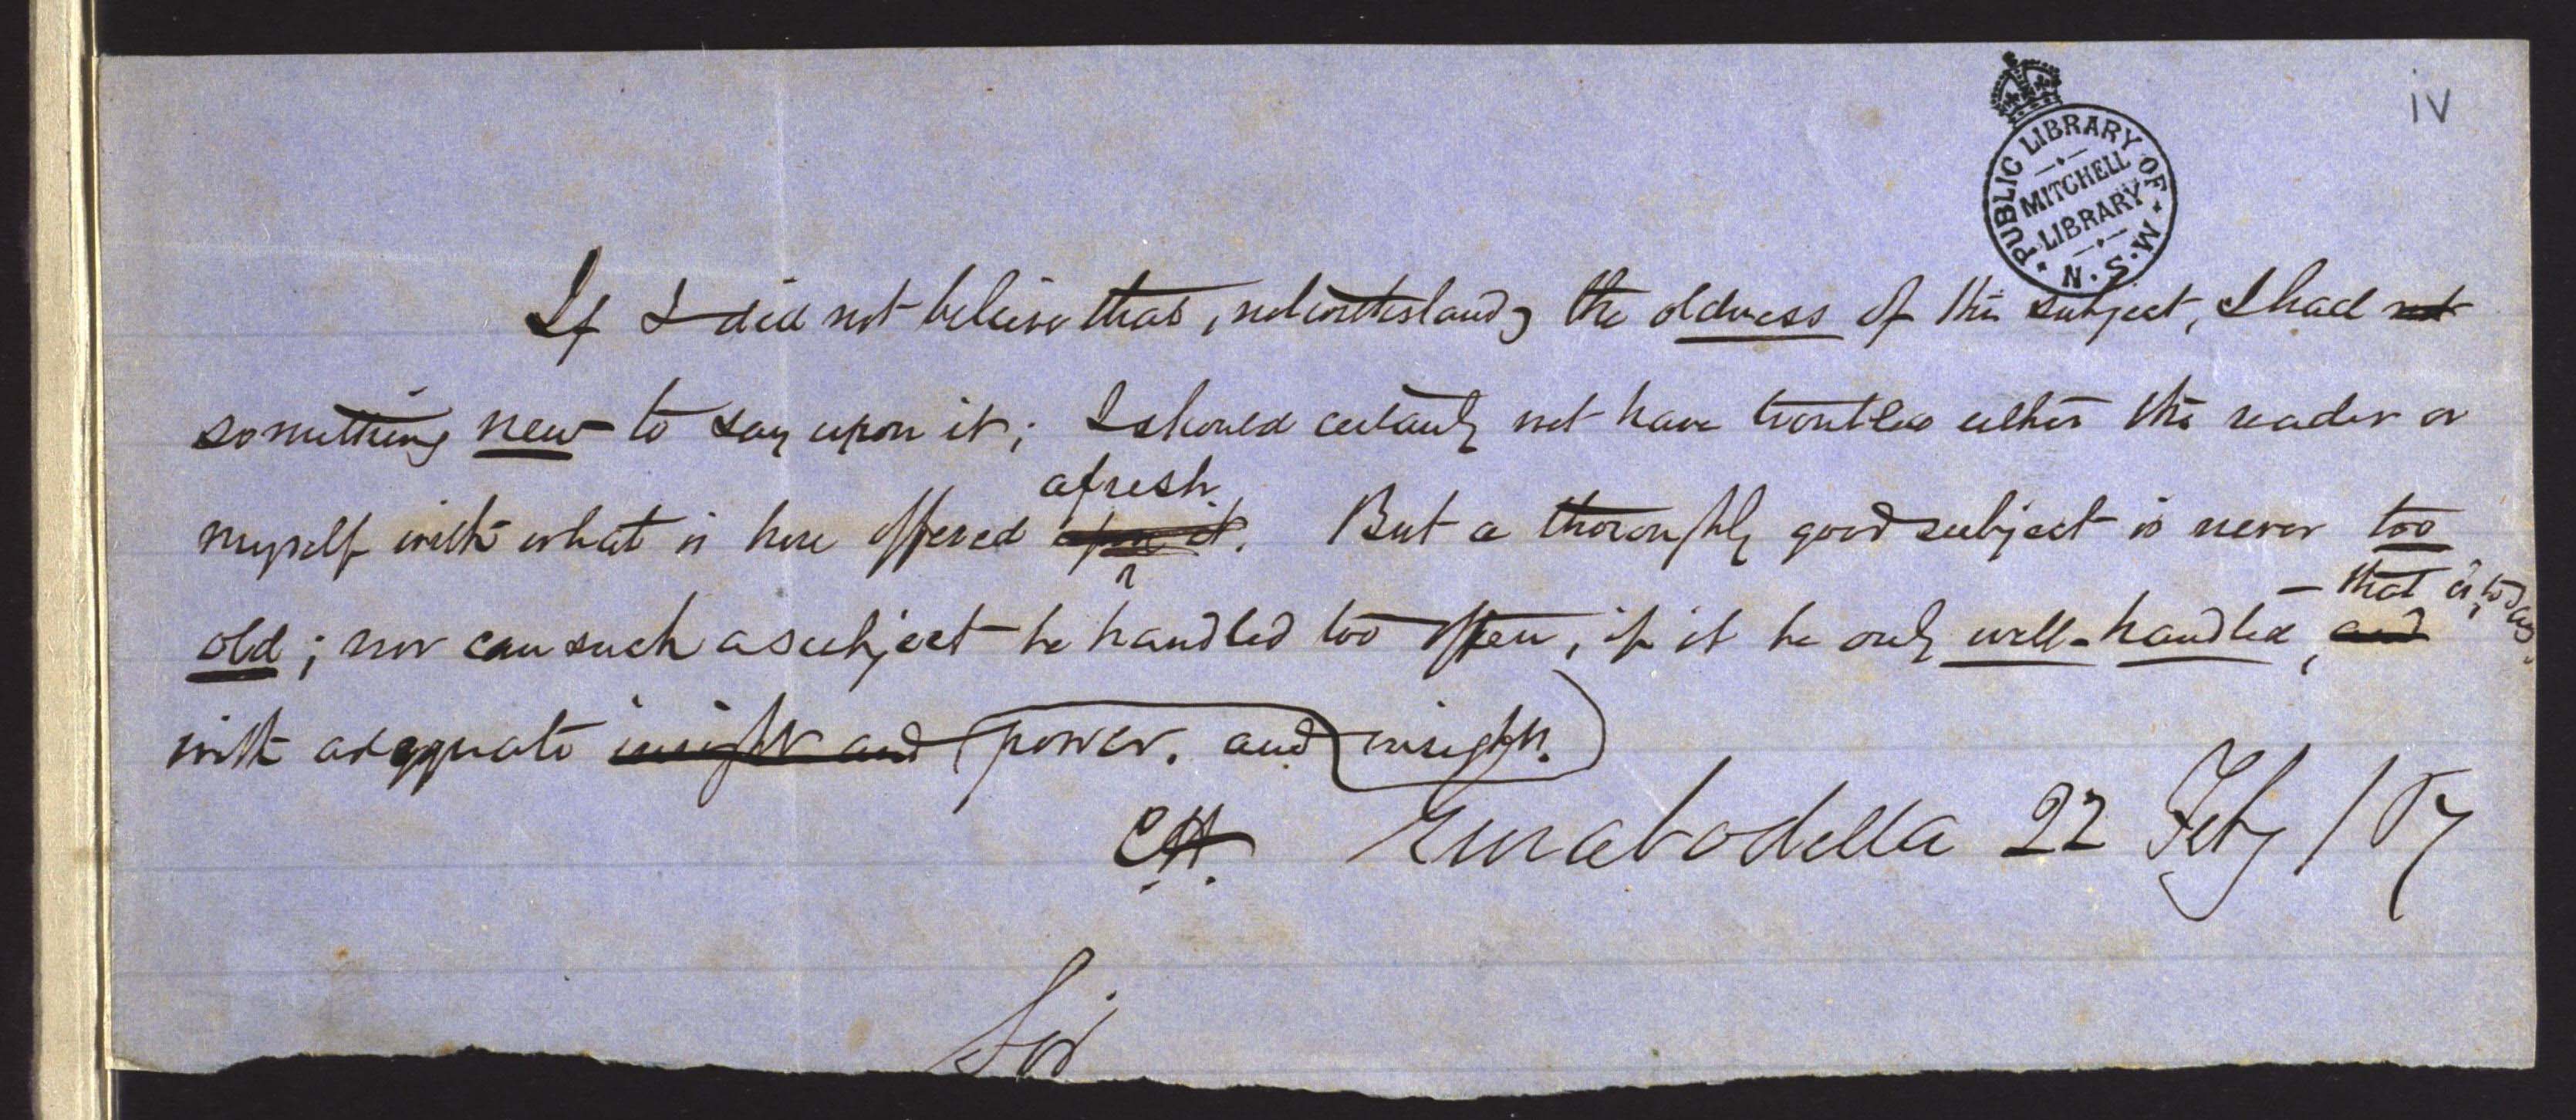 iv
PUBLIC LIBRARY OF N.S.W.
MITCHELL
LIBRARY
If I did not believe that, notwithstandg the oldness of the subject, I had not
something new to say upon it; I should certainly not have troubled either the reader or
afresh
myself with what is here offered upon it. But a thoroughly good subject is never too
– that is, to say,
old; nor can such a subject be handled too often, if it be only well-handled, and
with adequate insight and (power. and insight.)
C.H. Eurabodella 22 Feby / 57
For